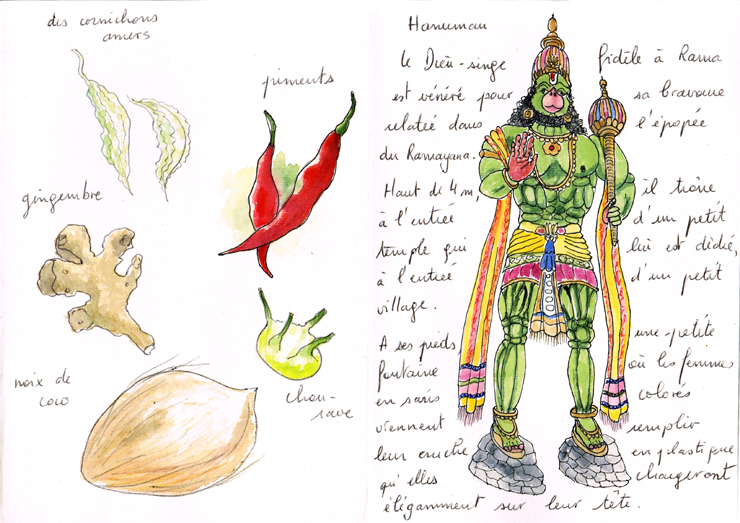 des cornichons
amers
piments
gingembre
noix de
coco
chou-
rave
Hanuman
le Dieu-singe fidèle à Rama
est vénéré pour sa bravoure
relatée dans l'épopée
du Ramayana.
Haut de 4 m, il trône
à l'entrée d'un petit
temple qui lui est dédié,
à l'entrée d'un petit
village.
A ses pieds une petite
fontaine où les femmes
en saris colorés
viennent remplir
leur cruche en plastique
qu'elles chargeront
élégamment sur leur tête.